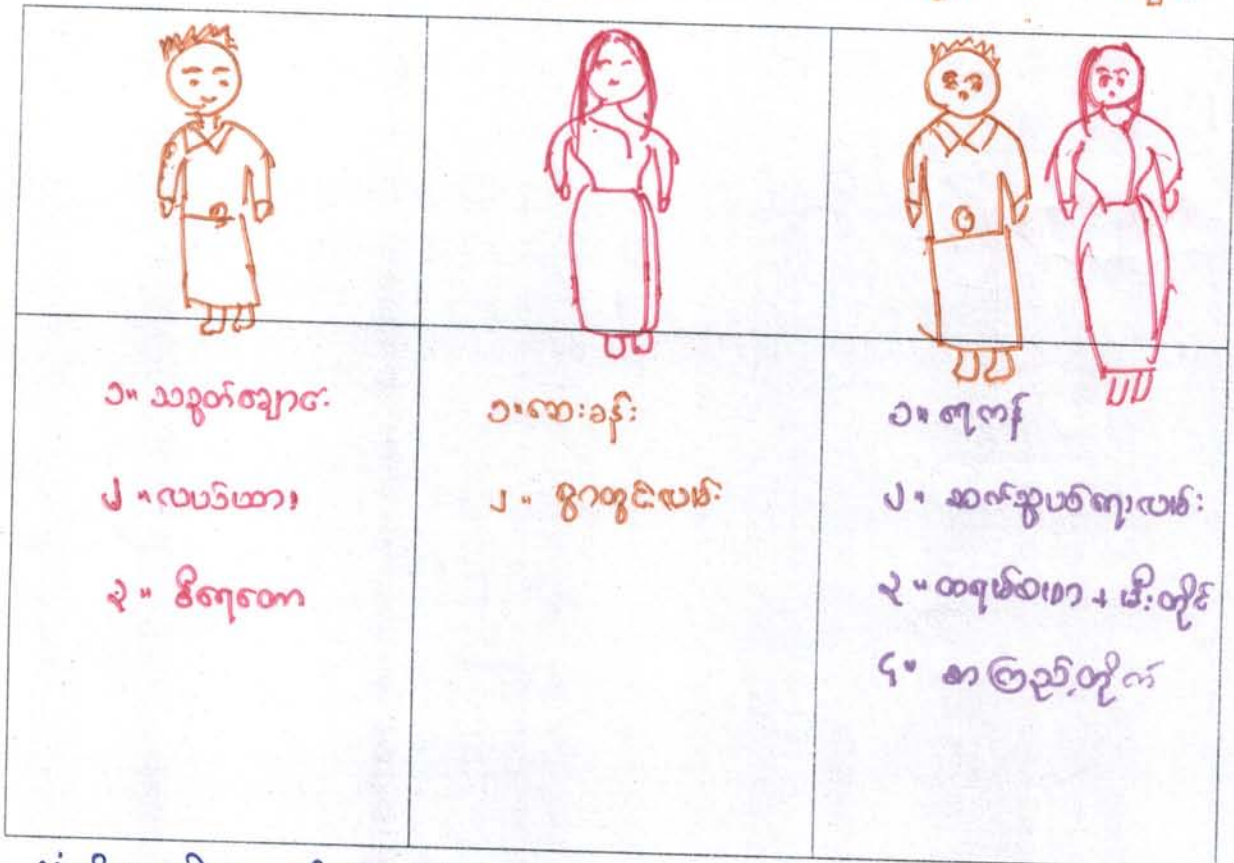 ၁။ သစွတ်ချောင်း
၂။ လယ်ယာ၊
၃။ စီရေတော
၁။ ဆေးခန်း
၂။ ရွာတွင်းလမ်း
၁။ ရေကန်
၂။ ဆက်သွယ်ရေးလမ်း
၃။ ထရမ်စဖော + မီးတိုင်
၄။ စာကြည့်တိုက်